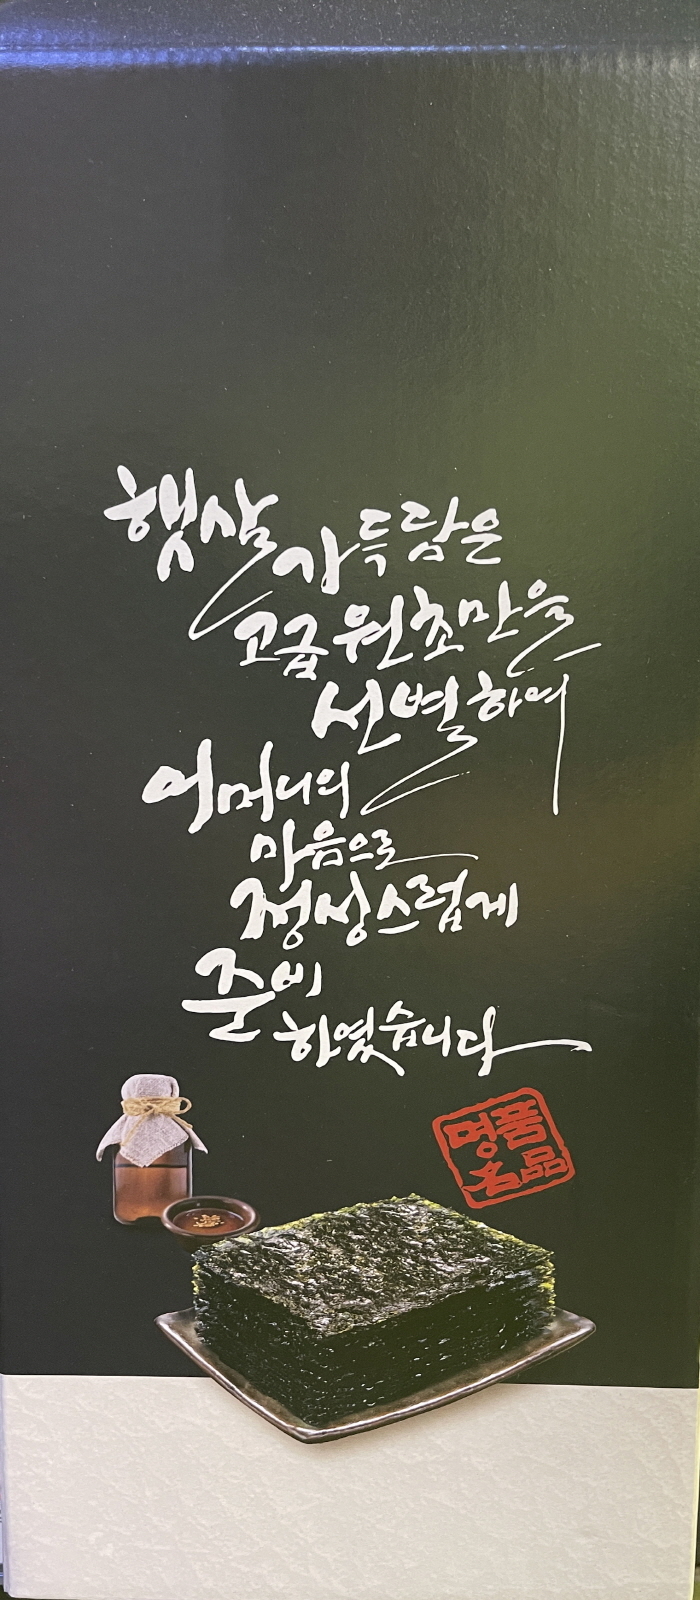 햇살 가득 담은
고급 원초만을
선별하여
어머니의
마음으로
정성스럽게
준비
하였습니다
명품
名品